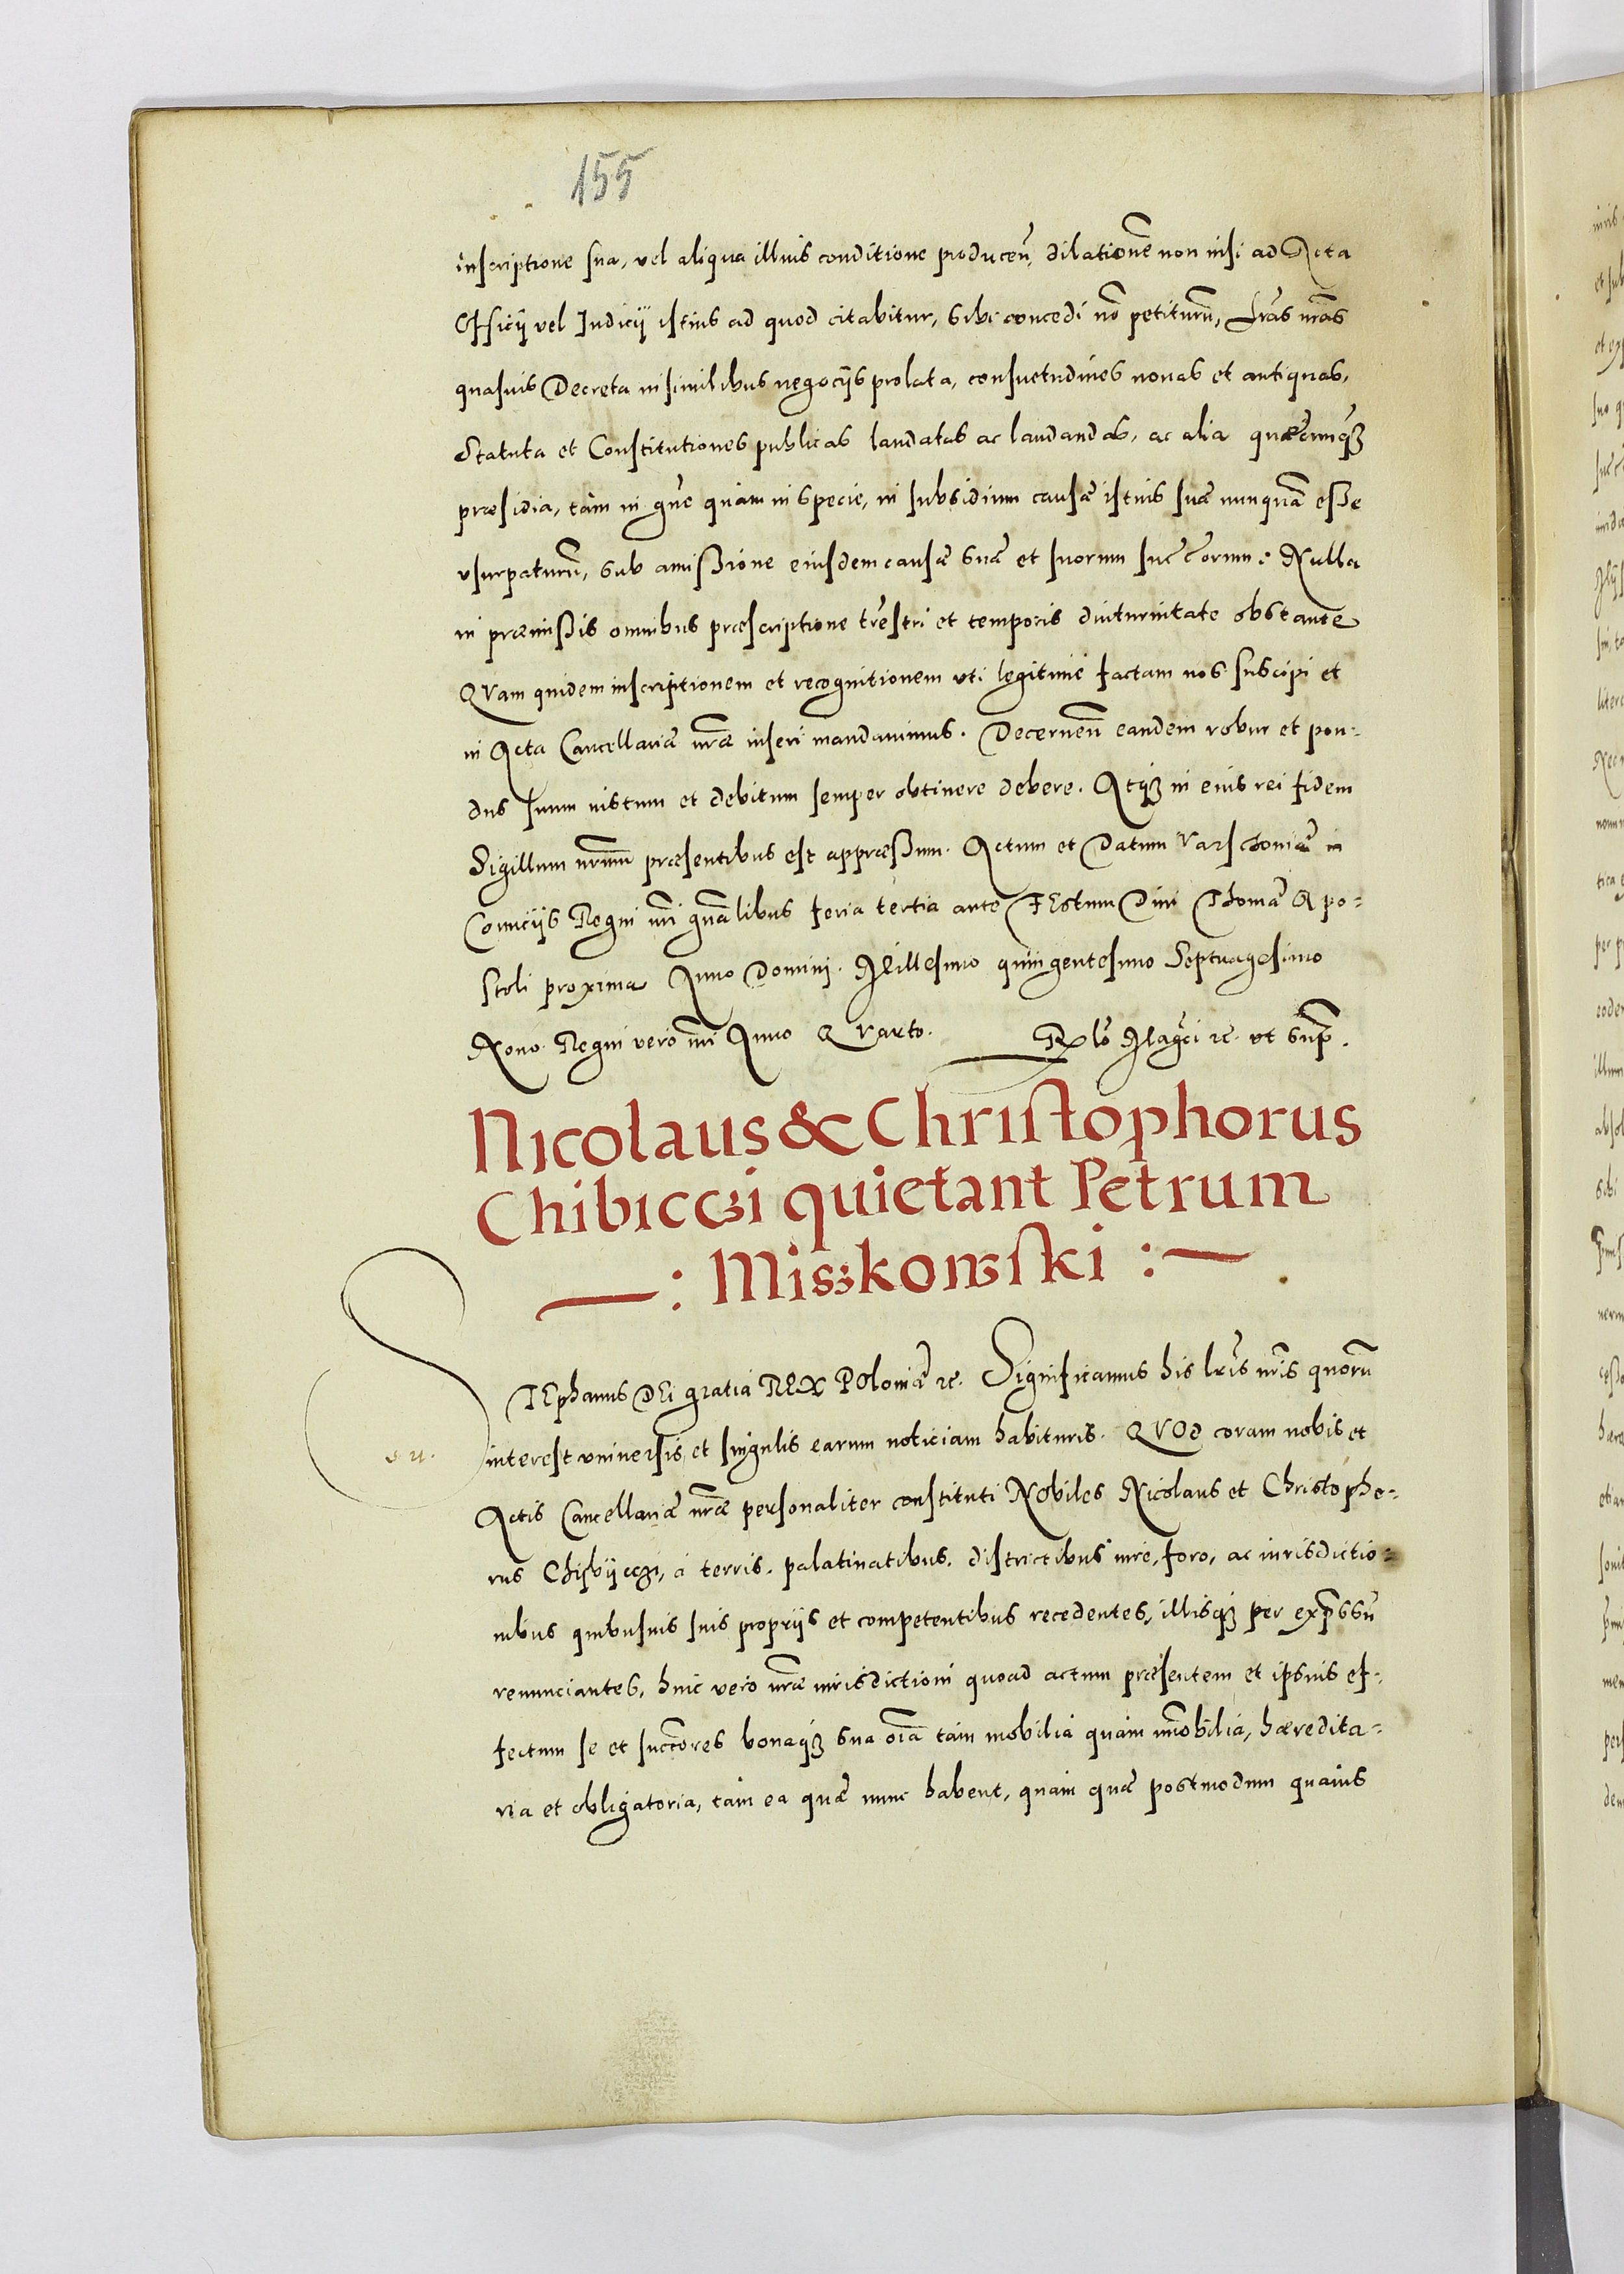 155
inscriptione sua, vel aliqua illius conditione producen̄, dilationē non nisi ad Acta
Officij vel Iudicij istius ad quod citabitur, sibi concedi nō petiturū, Lrās nrās
quasuis Decreta in similibus negocijs prolata, consuetudines nouas et antiquas,
Statuta et Constitutiones publicas laudatas ac laudandas, ac alia quæcunqȝ
præsidia, tàm in gñe quàm in specie, in subsidium causæ istius suæ nunquā esse
vsurpaturū, sub amißione eiusdem causæ suæ et suorum succ̄orum: Nulla
in præmißis omnibus præscriptione trēstri et temporis diuturnitate obstante
QVam quidem inscriptionem et recognitionem vti legitimè factam nos suscipi et
in Acta Cancellariæ nrǣ inseri mandauimus. Decernen̄ eandem robur et pon-
dus suum iustum et debitum semper obtinere debere. Atqȝ in eius rei fidem
Sigillum nrūm præsentibus est appræßum. Actum et Datum Varschouiæ in
Comicijs Regni nrī gnāalibus feria tertia ante FEstum Diui Thomæ Apo-
stoli proxima Anno Domini. Millesimo quingentesimo Septuagesimo
Nono. Regni verò nrī Anno QVarto. Rlō Magci ꝛc. vt sup̄.
Nicolaus & Christophorus
Chibicczi quietant Petrum
—: Miszkowski :—
S TEphanus DEi gratia REX POloniæ ꝛc. Significamus his lrīs nrīs quorū
su. interest vniuersis et singulis earum noticiam habituris. QVOd coram nobis et
Actis Cancellariæ nrǣ personaliter constituti NObiles Nicolaus et Christopho-
rus Chibijcczi, à terris, palatinatibus, districtibus iure, foro, ac iurisdictio-
nibus quibusuis suis proprijs et competentibus recedentes, illisqȝ per exp̄ssū
renunciantes, huic verò nrǣ iurisdictioni quoad actum præsentem et ipsius ef-
fectum se et succ̄ores bonaqȝ sua oīa tàm mobilia quàm im̄obilia, hæredita-
ria et obligatoria, tàm ea quæ nunc habent, quàm quæ postmodum quauis